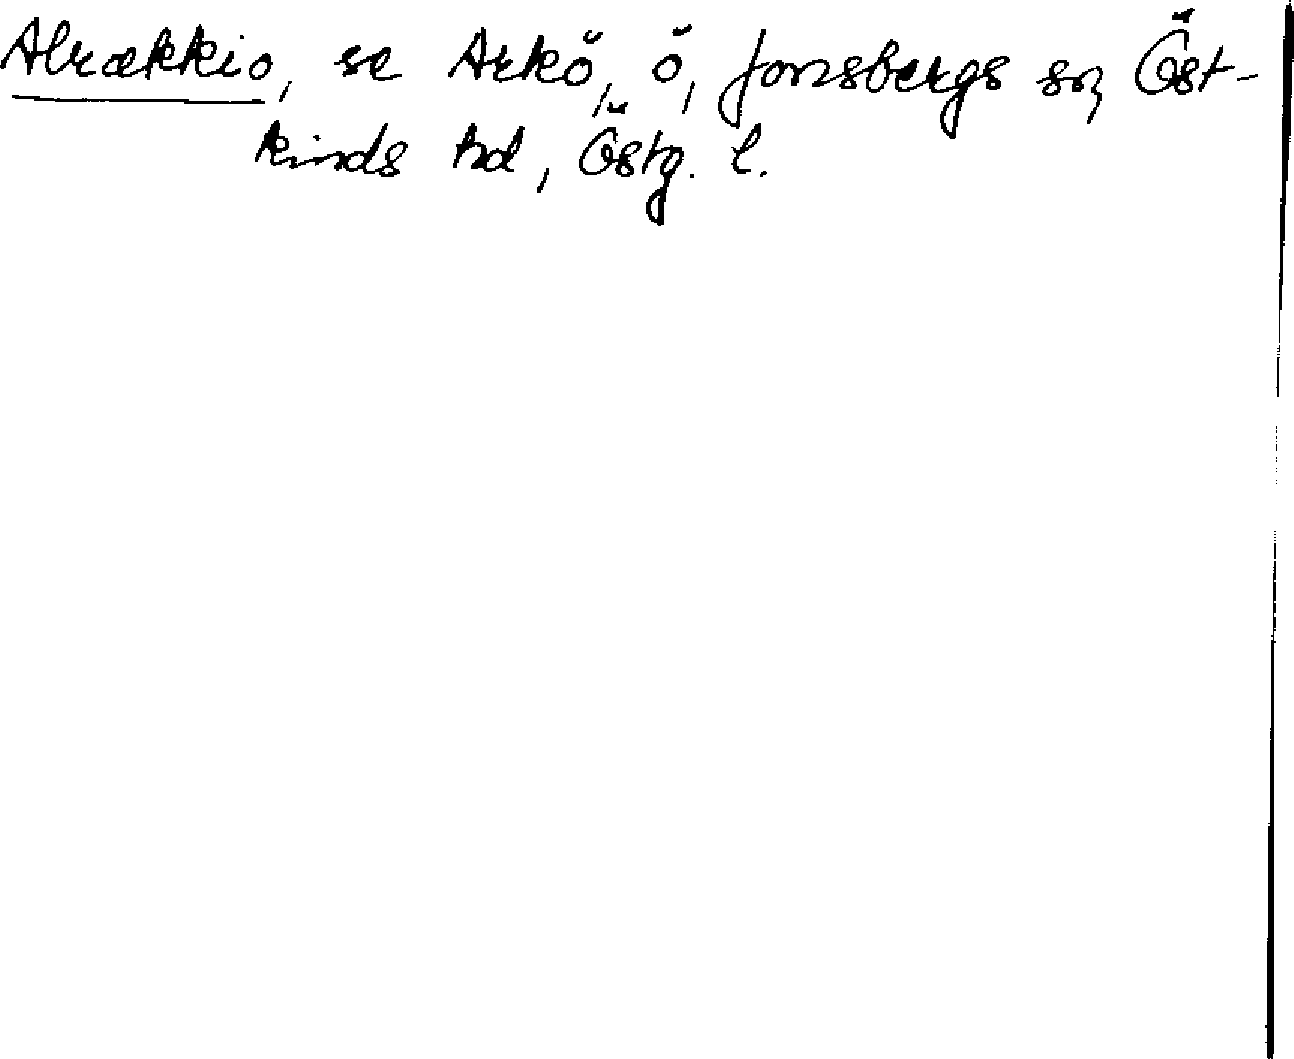 Alrækkio, se Arkö, ö, Jonsbergs sn, Öst-
kinds hd, Östg. l.